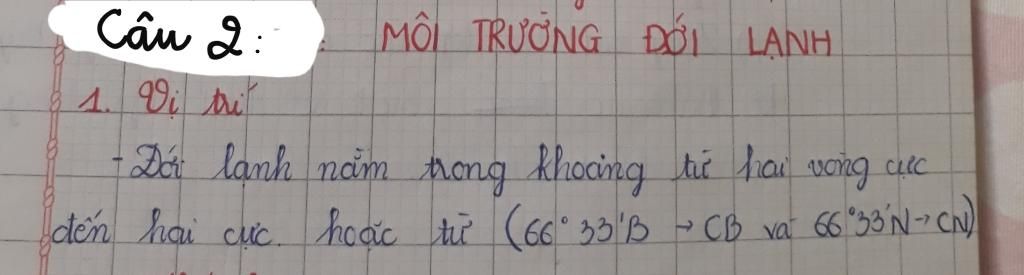 Câu 2: : MÔI TRƯỜNG ĐỚI LẠNH
1. Vị trí
- Đới lạnh nằm trong khoảng từ hai vòng cực
đến hai cực. hoặc từ (66° 33'B → CB và 66°33'N → CN)